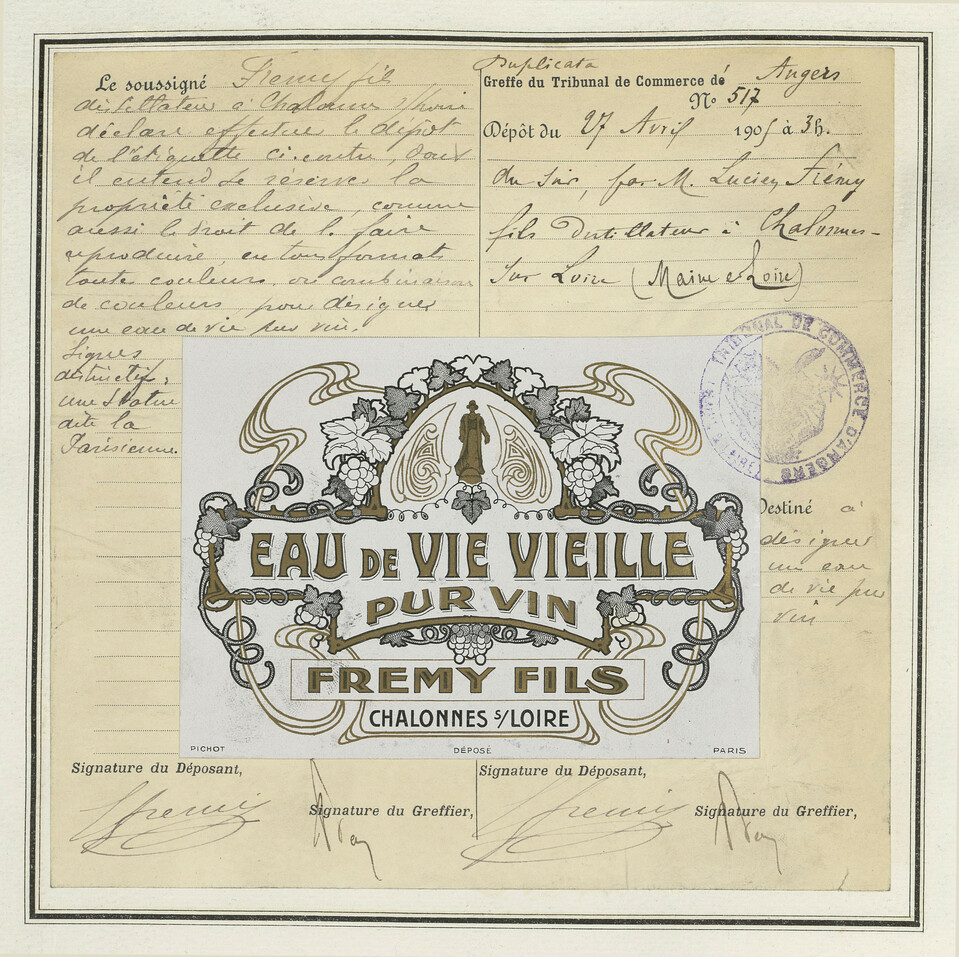 Le soussigné Fremy fils
distillateur à Chalonnes s/Loire
déclare effectuer le dépôt
de l'étiquette ci-contre, dont
il entend se réserver la
propriété exclusive, comme
aussi le droit de la faire
reproduire, en tous formats
toutes couleurs ou combinaison
de couleurs pour désigner
une eau de vie pur vin.
Signes
distinctifs:
une Statue
dite la
Parisienne.
Duplicata
Greffe du Tribunal de Commerce de Angers
No 517
Dépôt du 27 Avril 1905 à 3h.
du sir, par M. Lucien Frémy
fils Distillateur à Chalonnes-
sur Loire (Maine et Loire)
TRIBUNAL DE COMMERCE D'ANGERS
Destiné à
désigner
une eau
de vie pur
vin
EAU DE VIE VIEILLE
PUR VIN
FREMY FILS
CHALONNES S/LOIRE
PICHOT DÉPOSÉ PARIS
Signature du Déposant,
Fremy
Signature du Greffier,
Signature du Déposant,
Fremy
Signature du Greffier,